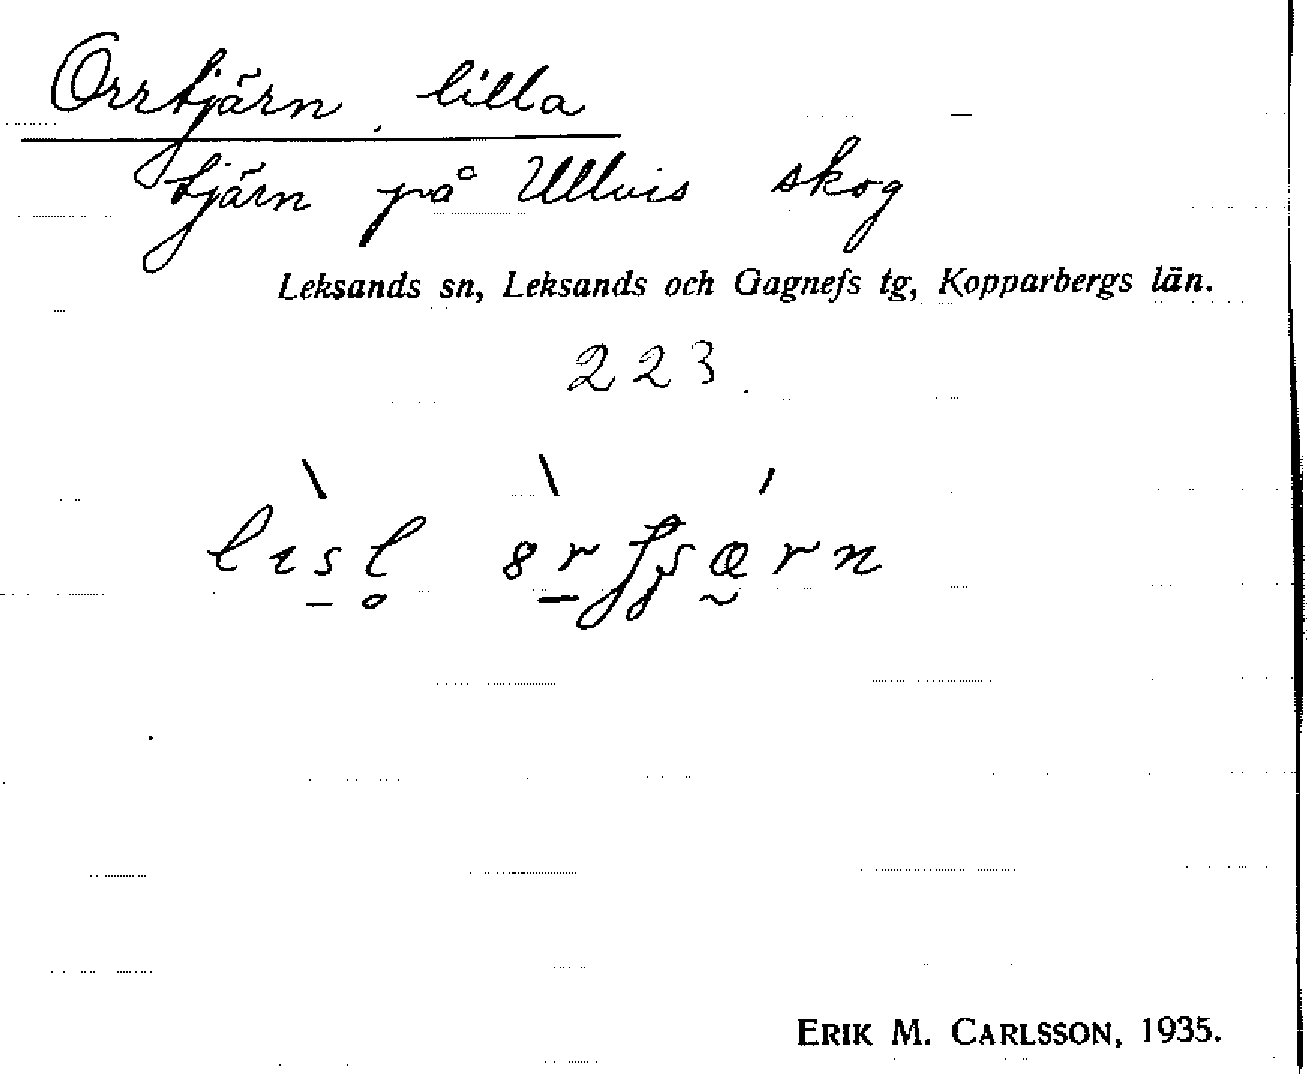 Orrtjärn, lilla
tjärn på Ullvis skog
Leksands sn, Leksands och Gagnefs tg, Kopparbergs län.
223.
ERIK M. CARLSSON, 1935.